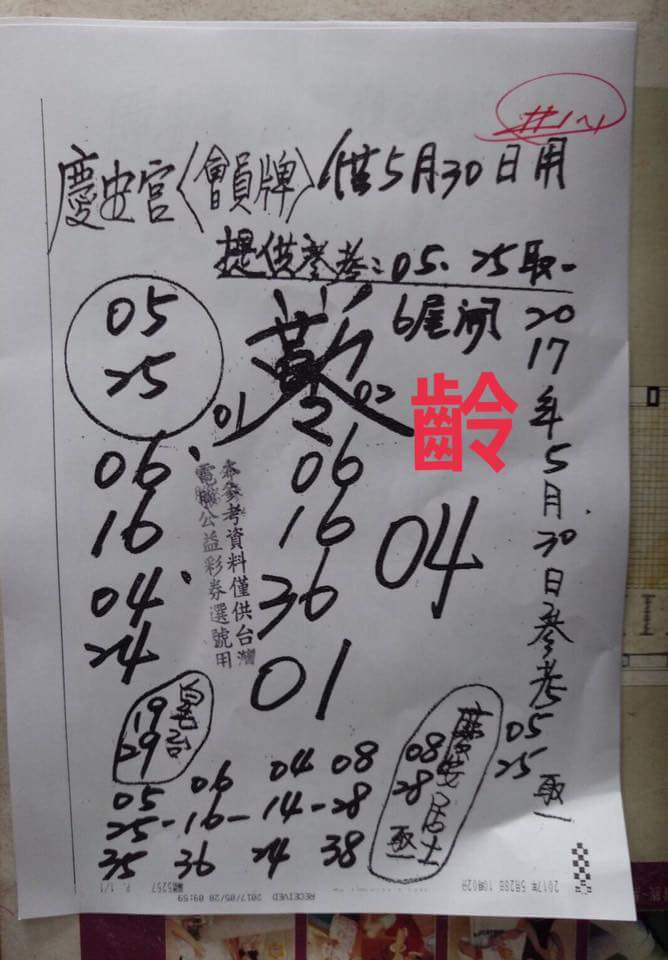 慶安宮〈會員牌〉僅5月30日用
提供參考:05、25取一
6尾開
2017年5月30日參考05
25
取一
05
25
01
02
齡
06
16
04
24
本參考資料僅供台灣
電腦公益彩券選號用
06
16
36
01
04
19
29
08
28
取一
05 06 04 08
25-16-14-28
35 36 24 38
2017年 5月28日 10時02分
RECEIVED 2017/05/28 09:59
5257 P. 1/1